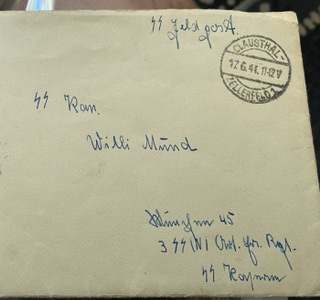 SS Feldpost
CLAUSTHAL-
17.6.41.11-12V
ZELLERFELD 1
SS Kan.
Willi Mund
München 45
3 SS (N) Ers. Rgt.
SS Kaserne